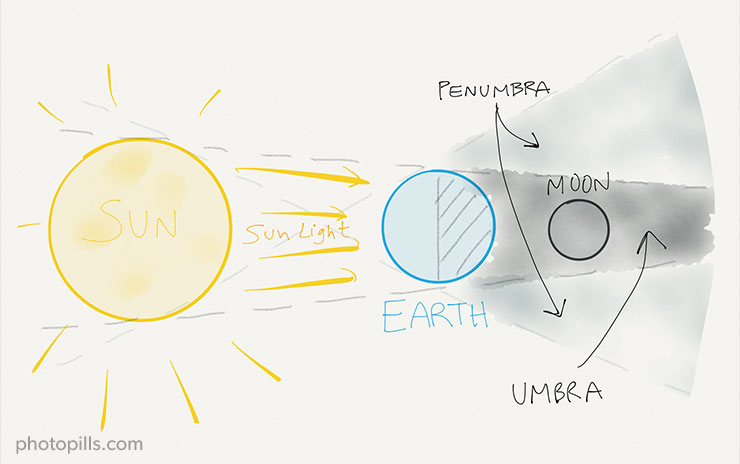 PENUMBRA
MOON
SUN
Sun Light
EARTH
UMBRA
photopills.com